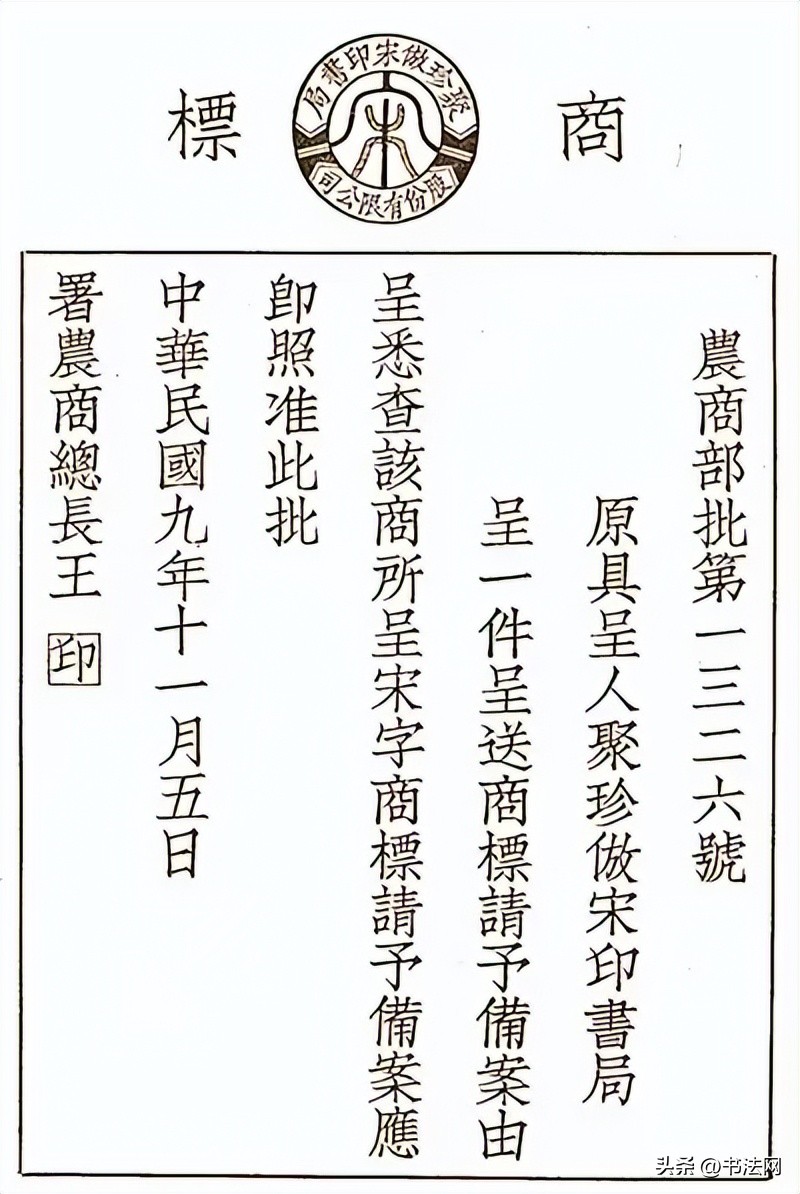 商標
聚珍倣宋印書局
股份有限公司
農商部批第一三二六號
原具呈人聚珍倣宋印書局
呈一件呈送商標請予備案由
呈悉查該商所呈宋字商標請予備案應
卽照准此批
中華民國九年十一月五日
署農商總長王 印
头条 @书法网